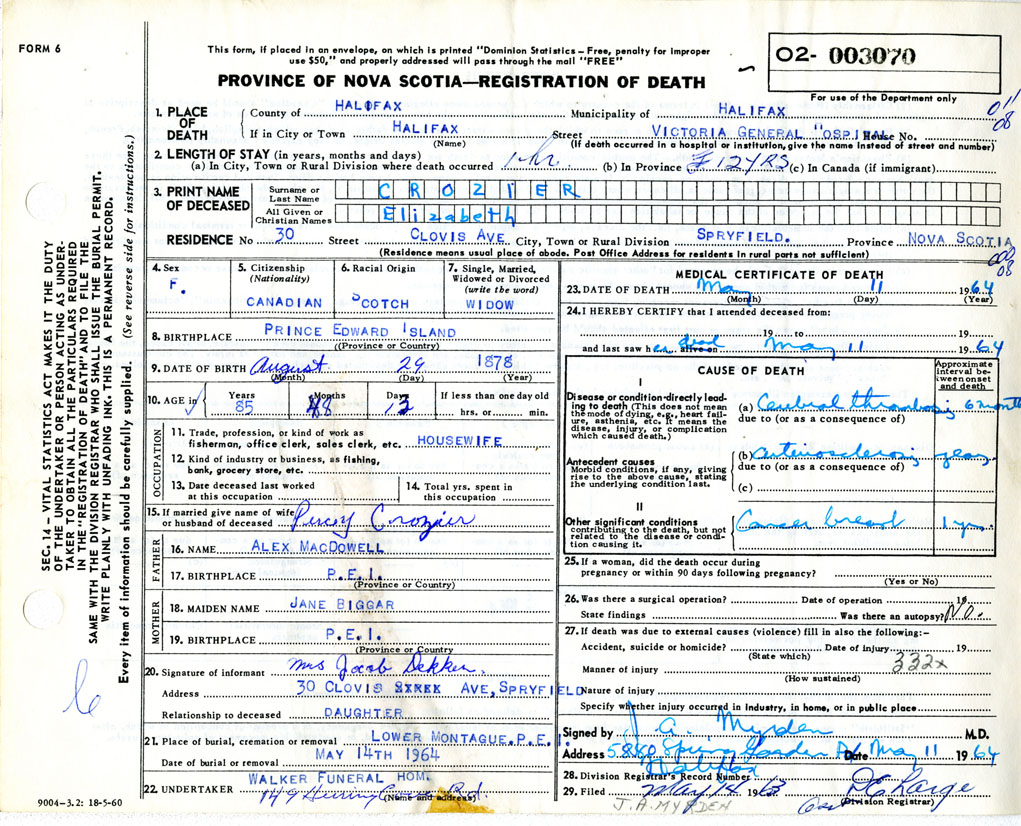 FORM 6
This form, if placed in an envelope, on which is printed "Dominion Statistics – Free, penalty for improper
use $50," and properly addressed will pass through the mail "FREE"
PROVINCE OF NOVA SCOTIA—REGISTRATION OF DEATH
02- 003070
For use of the Department only
011
08
1. PLACE OF DEATH
County of HALIFAX Municipality of HALIFAX
If in City or Town HALIFAX Street VICTORIA GENERAL HOSPITAL House No.
(Name) (If death occurred in a hospital or institution, give the name instead of street and number)
2. LENGTH OF STAY (in years, months and days)
(a) In City, Town or Rural Division where death occurred 1 hr. (b) In Province 12 YRS (c) In Canada (if immigrant)
3. PRINT NAME OF DECEASED
Surname or Last Name CROZIER
All Given or Christian Names Elizabeth
RESIDENCE No 30 Street CLOVIS AVE. City, Town or Rural Division SPRYFIELD. Province NOVA SCOTIA
(Residence means usual place of abode. Post Office Address for residents in rural parts not sufficient)
08
4. Sex
F.
5. Citizenship
(Nationality)
CANADIAN
6. Racial Origin
SCOTCH
7. Single, Married, Widowed or Divorced
(write the word)
WIDOW
8. BIRTHPLACE PRINCE EDWARD ISLAND
((Province or Country)
9. DATE OF BIRTH August 29 1878
(Month) (Day) (Year)
10. AGE in Years 85 Months 8 Days 12 If less than one day old
hrs. or min.
OCCUPATION
11. Trade, profession, or kind of work as
fisherman, office clerk, sales clerk, etc. HOUSEWIFE
12. Kind of industry or business, as fishing,
bank, grocery store, etc.
13. Date deceased last worked
at this occupation
14. Total yrs. spent in
this occupation
15. If married give name of wife
or husband of deceased Percy Crozier
FATHER
16. NAME ALEX MACDOWELL
17. BIRTHPLACE P.E.I.
(Province or Country)
MOTHER
18. MAIDEN NAME JANE BIGGAR
19. BIRTHPLACE P.E.I.
(Province or Country
20. Signature of informant Mrs Jacob Dekker.
Address 30 CLOVIS AVE, SPRYFIELD
Relationship to deceased DAUGHTER
21. Place of burial, cremation or removal LOWER MONTAGUE. P.E.I.
Date of burial or removal MAY 14TH 1964
22. UNDERTAKER WALKER FUNERAL HOM.
149 Herring Cove Rd
(Name and address)
MEDICAL CERTIFICATE OF DEATH
23. DATE OF DEATH May 11 1964
(Month) (Day) (Year)
24. I HEREBY CERTIFY that I attended deceased from:
19 to 19
and last saw her dead alive on May 11 1964
CAUSE OF DEATH
Approximate interval between onset and death
I
Disease or condition directly leading to death (This does not mean the mode of dying, e.g., heart failure, asthenia, etc. It means the disease, injury, or complication which caused death.)
(a) Cerebral thrombosis 6 months
due to (or as a consequence of)
Antecedent causes
Morbid conditions, if any, giving rise to the above cause, stating the underlying condition last.
(b) arteriosclerosis years
due to (or as a consequence of)
(c)
II
Other significant conditions
contributing to the death, but not related to the disease or condition causing it.
Cancer breast 1 yr.
25. If a woman, did the death occur during
pregnancy or within 90 days following pregnancy?
(Yes or No)
26. Was there a surgical operation? Date of operation 19
State findings Was there an autopsy? No.
27. If death was due to external causes (violence) fill in also the following:–
Accident, suicide or homicide? Date of injury 19
(State which)
332x
Manner of injury
(How sustained)
Nature of injury
Specify whether injury occurred in industry, in home, or in public place
Signed by J. A. Myrden M.D.
Address 5880 Spring Garden Rd Date May 11 1964
Halifax
28. Division Registrar's Record Number
29. Filed May 14 1963 D E Large
(Division Registrar)
J. A. MYRDEN
SEC. 14 – VITAL STATISTICS ACT MAKES IT THE DUTY
OF THE UNDERTAKER OR PERSON ACTING AS UNDER-
TAKER TO OBTAIN ALL THE PARTICULARS REQUIRED
IN THE "REGISTRATION OF DEATH" AND TO FILE THE
SAME WITH THE DIVISION REGISTRAR WHO SHALL ISSUE THE BURIAL PERMIT.
WRITE PLAINLY WITH UNFADING INK. THIS IS A PERMANENT RECORD.
Every item of information should be carefully supplied. (See reverse side for instructions.)
9004–3.2: 18-5-60